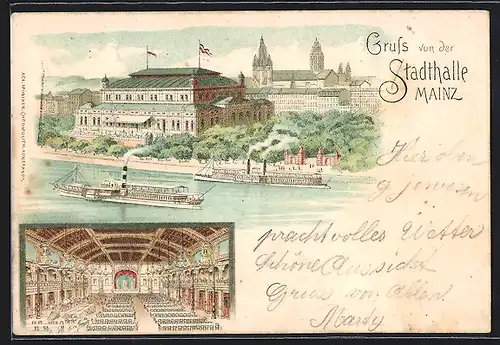 Gruſs von der
Stadthalle
MAINZ
Hier oben
gewesen
prachtvolles Wetter
schöne Aussicht
Gruss von Allen